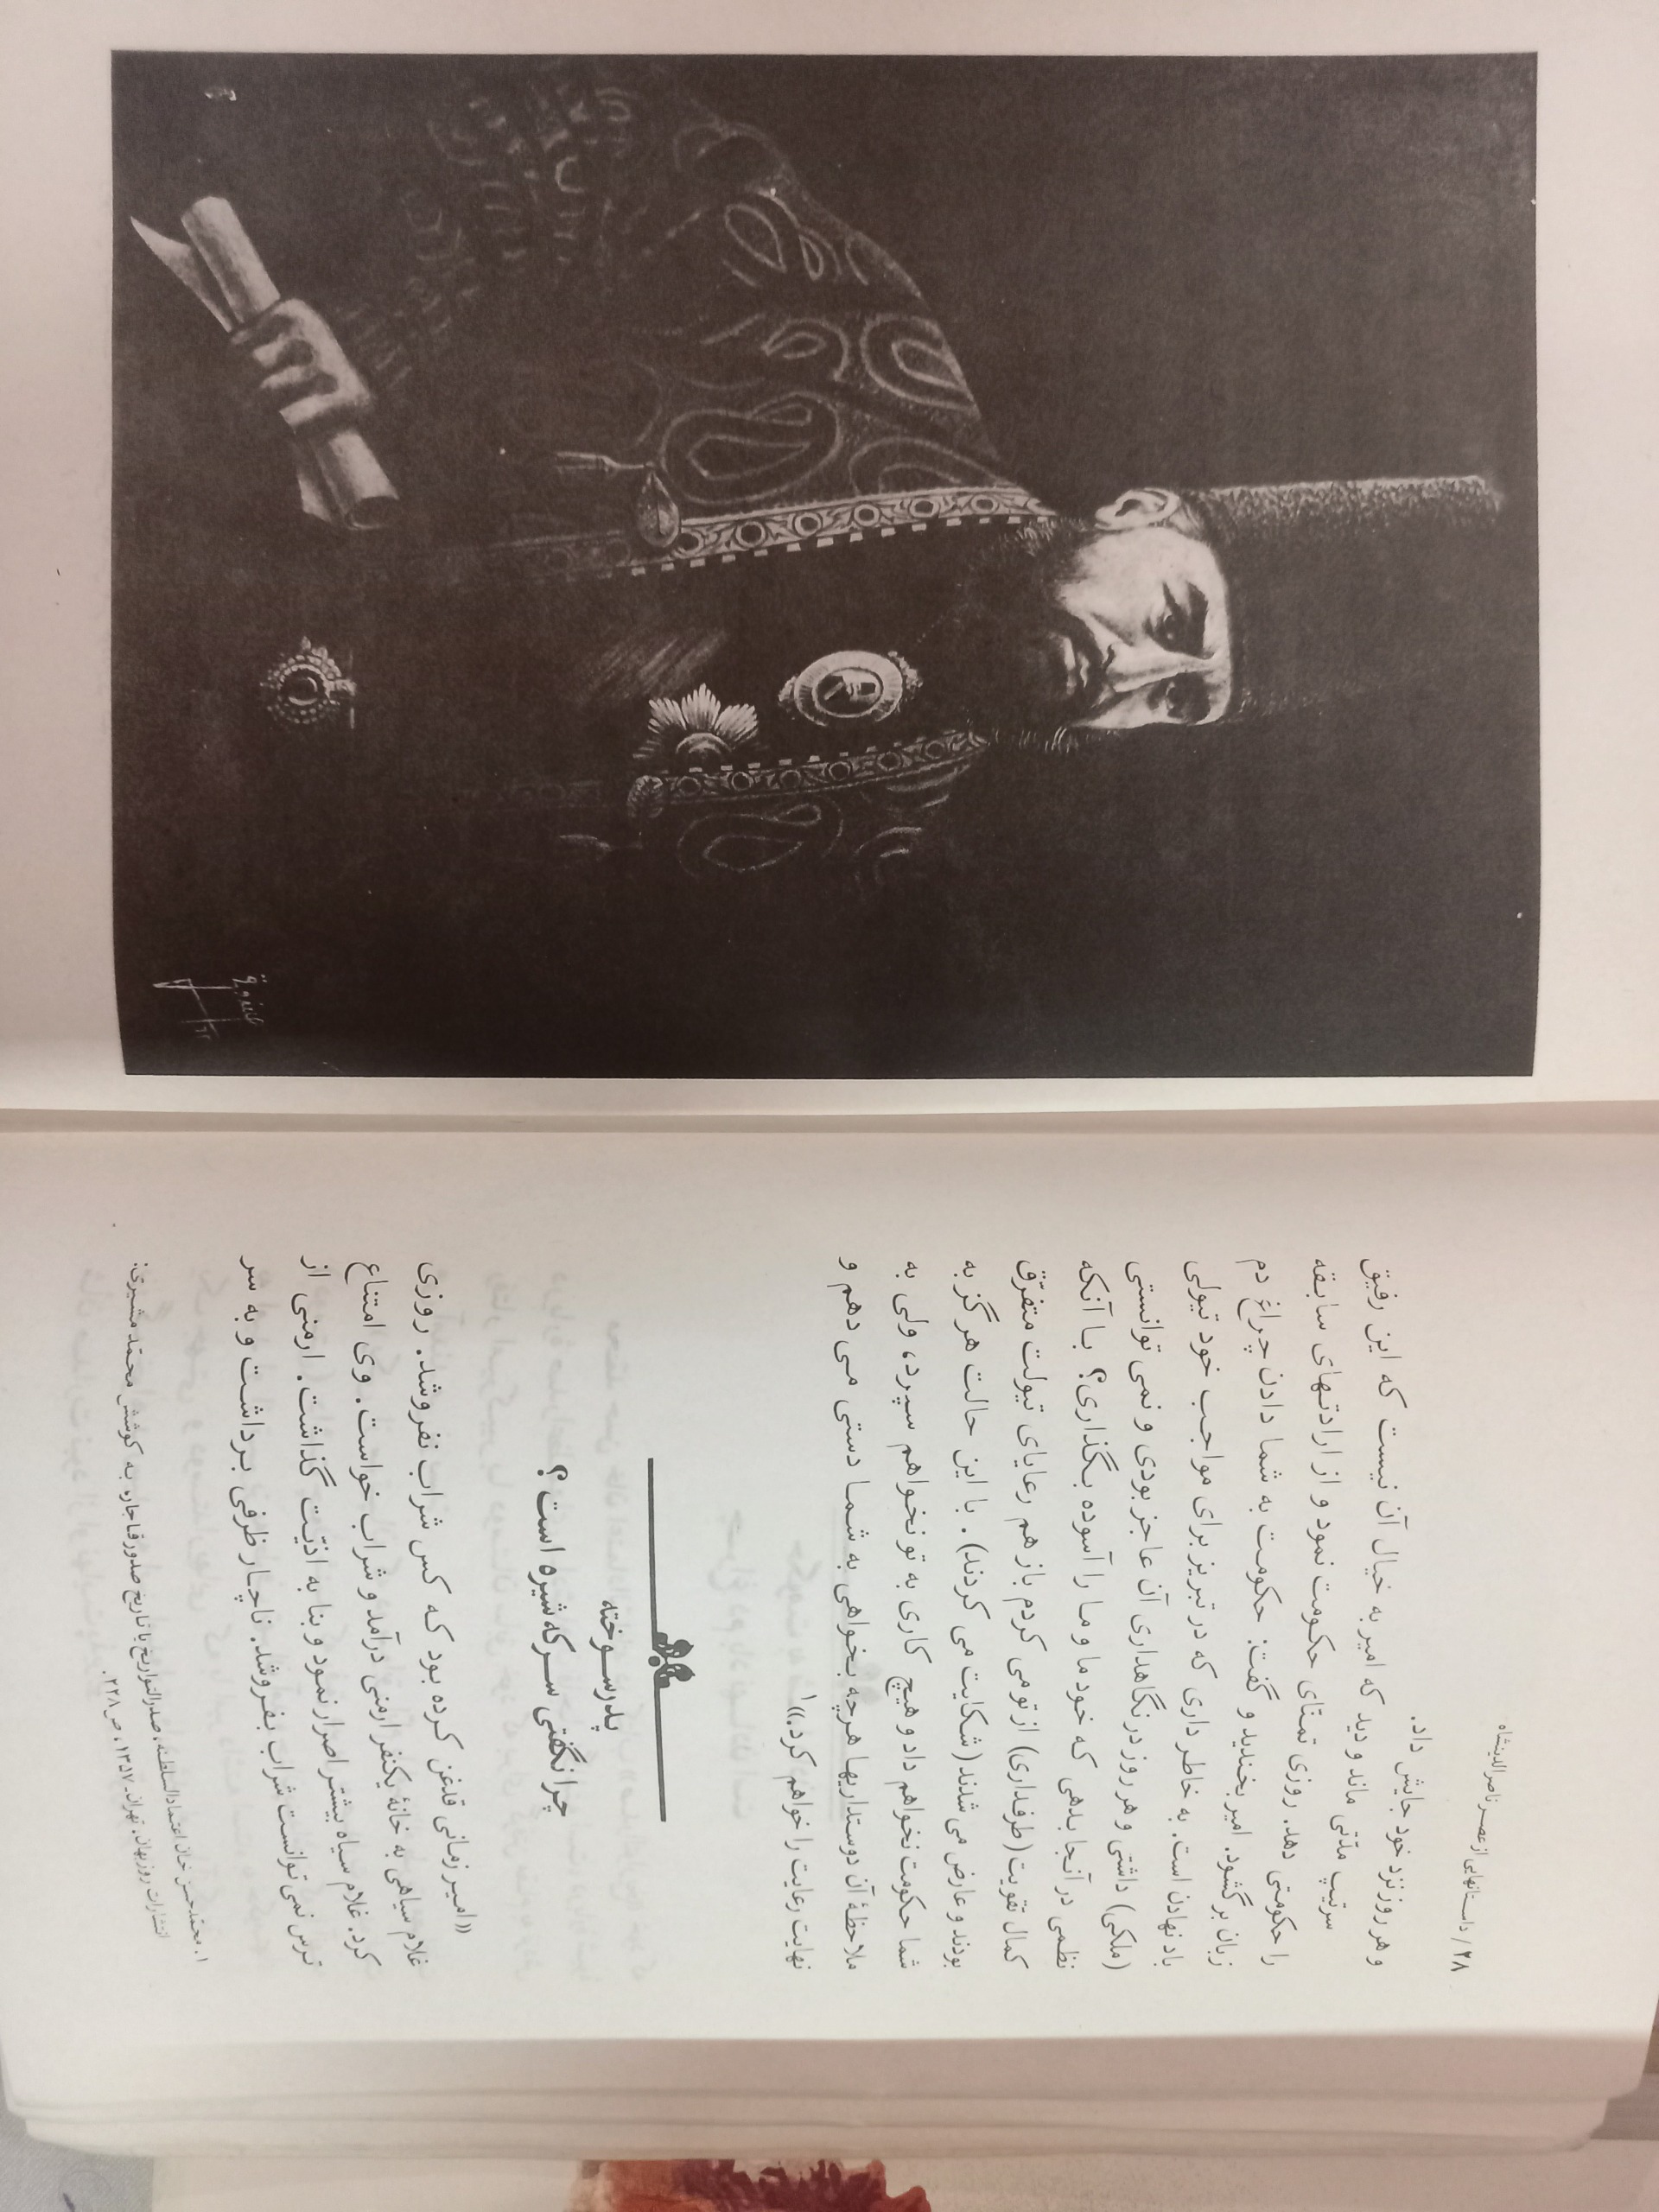 ۲۸ / داستانهایی از عصر ناصرالدینشاه
و هر روز نزد خود جایش داد.
سرتیپ مدّتی ماند و دید که امیر به خیال آن نیست که این رفیق
را حکومتی دهد. روزی تمنّای حکومت نمود و از ارادتهای سابقه
زبان برگشود. امیر بخندید و گفت: حکومت به شما دادن چراغ دم
باد نهادن است. به خاطر داری که در تبریز برای مواجب خود تیولی
(ملکی) داشتی و هر روز در نگاهداری آن عاجز بودی و نمی توانستی
نظمی در آنجا بدهی که خود ما و ما را آسوده بگذاری؟ با آنکه
کمال تقویت (طرفداری) از تو می کردم باز هم رعایای تیولت متفرّق
بودند و عارض می شدند (شکایت می کردند). با این حالت هرگز به
شما حکومت نخواهم داد و هیچ کاری به تو نخواهم سپرد، ولی به
ملاحظهٔ آن دوستداریها هرچه بخواهی به شما دستی می دهم و
نهایت رعایت را خواهم کرد.»۱
پدرسوخته
چرا نگفتی سرکه شیره است؟
«امیر زمانی قدغن کرده بود که کس شراب نفروشد. روزی
غلام سیاهی به خانهٔ یکنفر ارمنی درآمد و شراب خواست. وی امتناع
کرد. غلام سیاه بیشتر اصرار نمود و بنا به اذیّت گذاشت. ارمنی از
ترس نمی توانست شراب بفروشد. ناچار ظرفی برداشت و به سر
۱. محمّدحسن خان اعتمادالسلطنه، صدرالتواریخ یا تاریخ صدور قاجار، به کوشش محمّد مشیری:
انتشارات روزبهان، تهران، ۱۳۵۷، ص ۲۲۸.